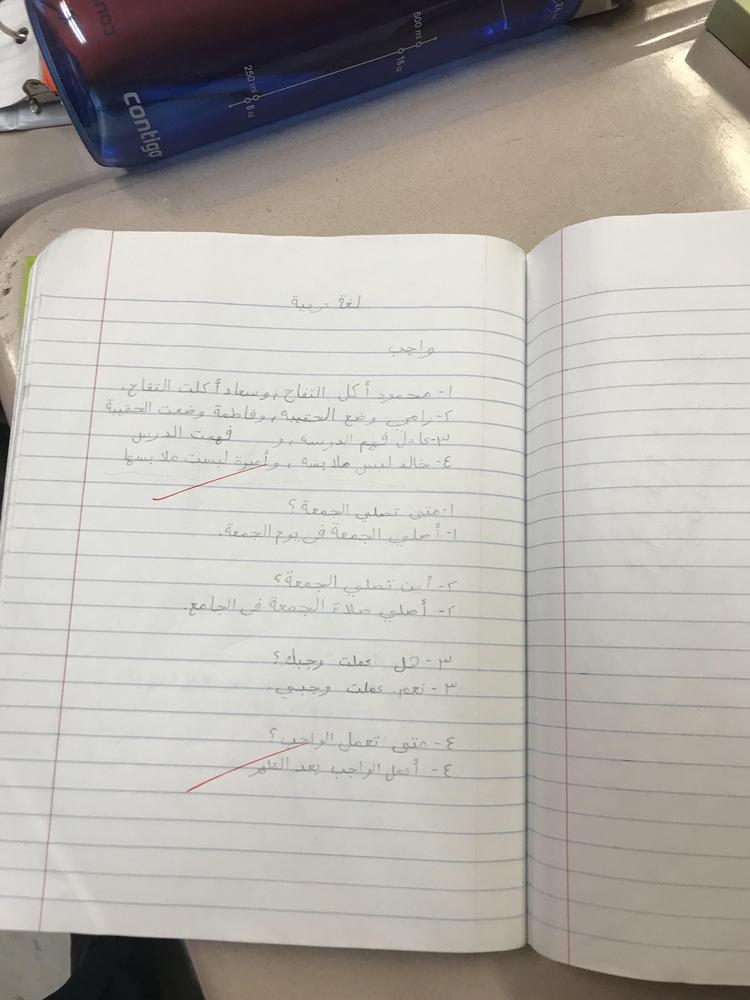 contigo
250 ml
8 oz
500 ml
16 oz
لغة عربية
واجب
١- محمود أكل التفاح، وسعاد أكلت التفاح.
٢- رامي وضع الحقيبة، وفاطمة وضعت الحقيبة
٣- عادل فهم الدرسه، و فهمت الدرس
٤- خالد لبس ملابسه، وأميرة لبست ملابسها
١- متى تصلي الجمعة؟
١- أصلي الجمعة في يوم الجمعة.
٢- أين تصلي الجمعة؟
٢- أصلي صلاة الجمعة في الجامع.
٣- هل عملت وجبك؟
٣- نعم، عملت وجبي.
٤- متى تعمل الواجب؟
٤- أعمل الواجب بعد الظهر